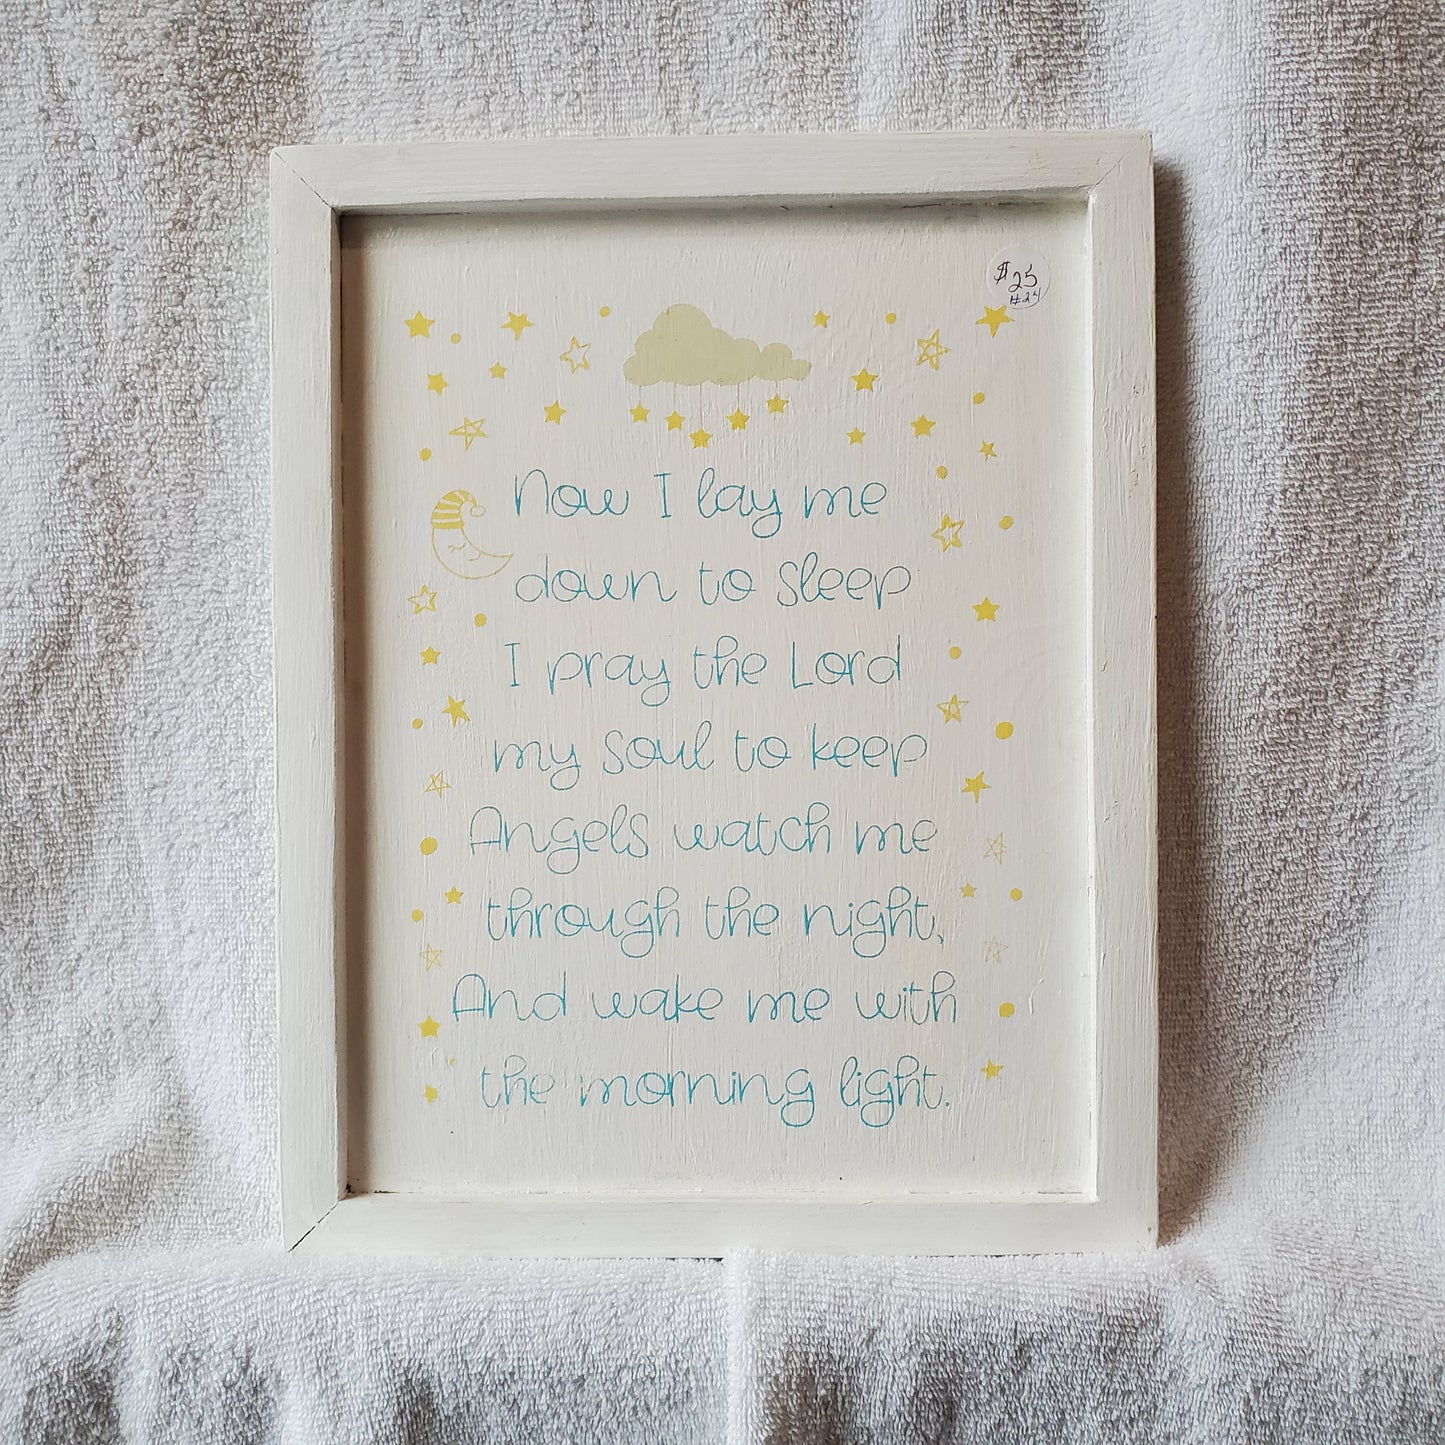 $25
#24
Now I lay me
down to sleep
I pray the Lord
my soul to keep
Angels watch me
through the night,
And wake me with
the morning light.